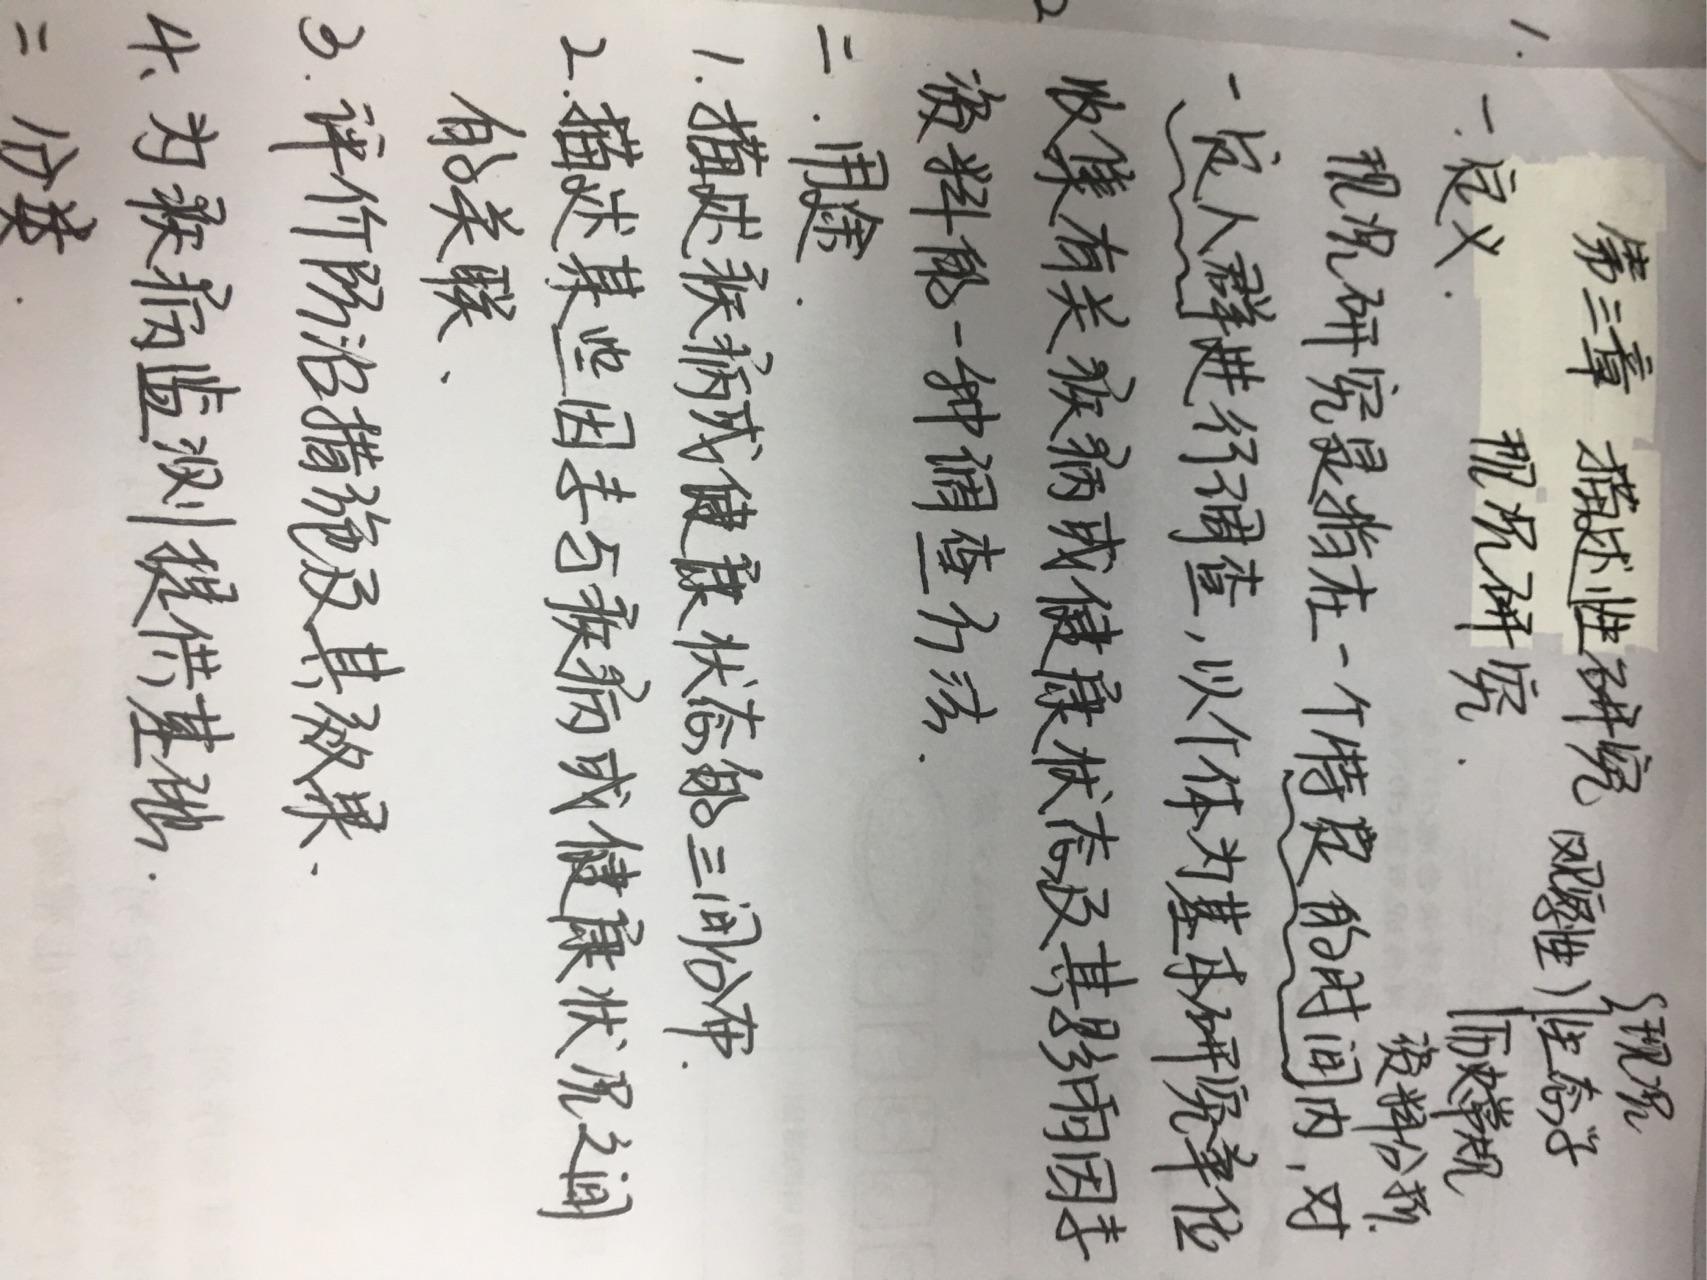 第三章 描述性研究 观察性
现况
生态学
历史常规
资料分析.
现况研究.
一.定义.
现况研究是指在一个特定的时间内,对
一定人群进行调查,以个体为基本研究单位
收集有关疾病或健康状态及其影响因素
资料的一种调查方法.
二.用途.
1.描述疾病或健康状态的三间分布.
2.描述某些因素与疾病或健康状况之间
的关联、
3.评价防治措施及其效果.
4、为疾病监测提供基础.
二 分类.